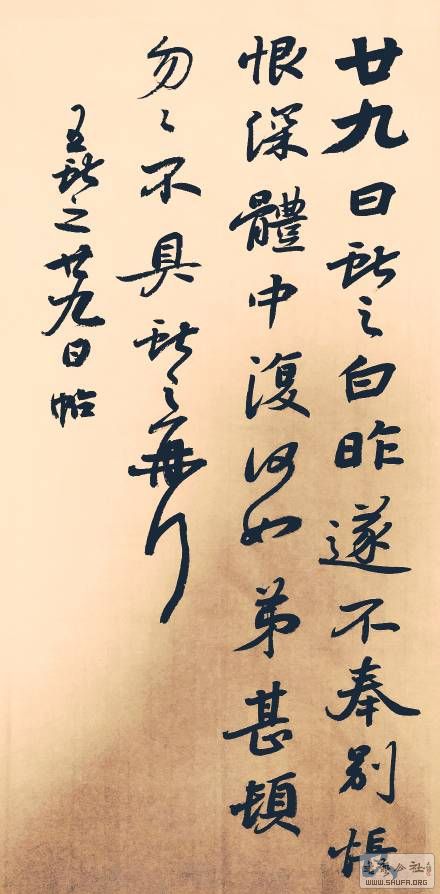 廿九日献之白昨遂不奉别悵
恨深體中復何如弟甚頓
勿々不具献之再行
王献之廿九日帖
WWW.SHUFA.ORG